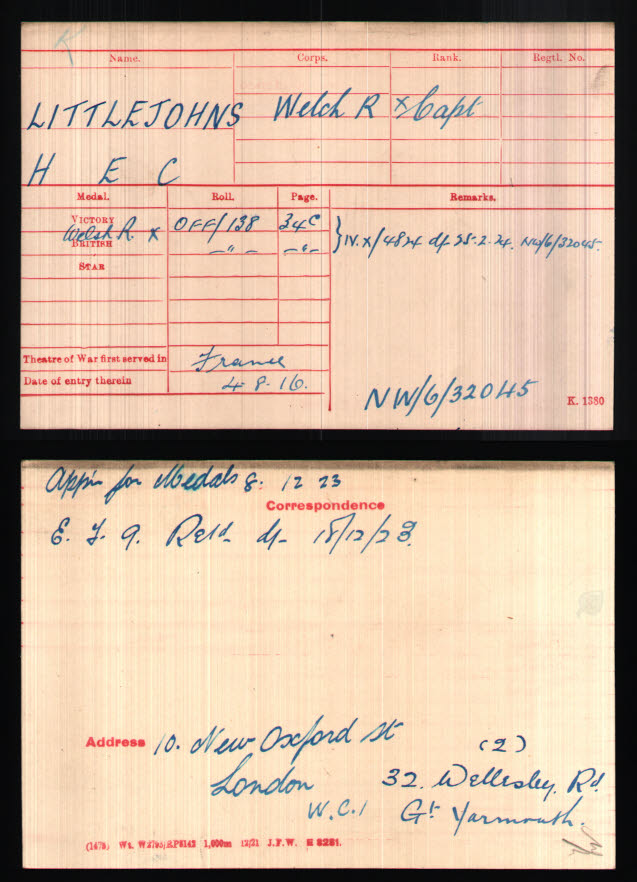 Name. Corps. Rank. Regtl. No.
LITTLEJOHNS Welch R x Capt
H E C
Medal. Roll. Page. Remarks.
VICTORY OFF/138 34C
Welsh R. x
BRITISH —"— —"— } IV. X/4824 df 25-2-24. NW/6/32045.
STAR
Theatre of War first served in France
Date of entry therein 4-8-16.
NW/6/32045
K. 1380
App'n for Medals 8. 12 23
Correspondence
E. F. 9. Retd. df- 18/12/23.
Address 10. New Oxford St (2)
London 32. Wellesley. Rd.
W.C.1 Gt. Yarmouth.
(1478) Wt. W3795/RP8142 1,000m 12/21 J.F.W. E 8281.